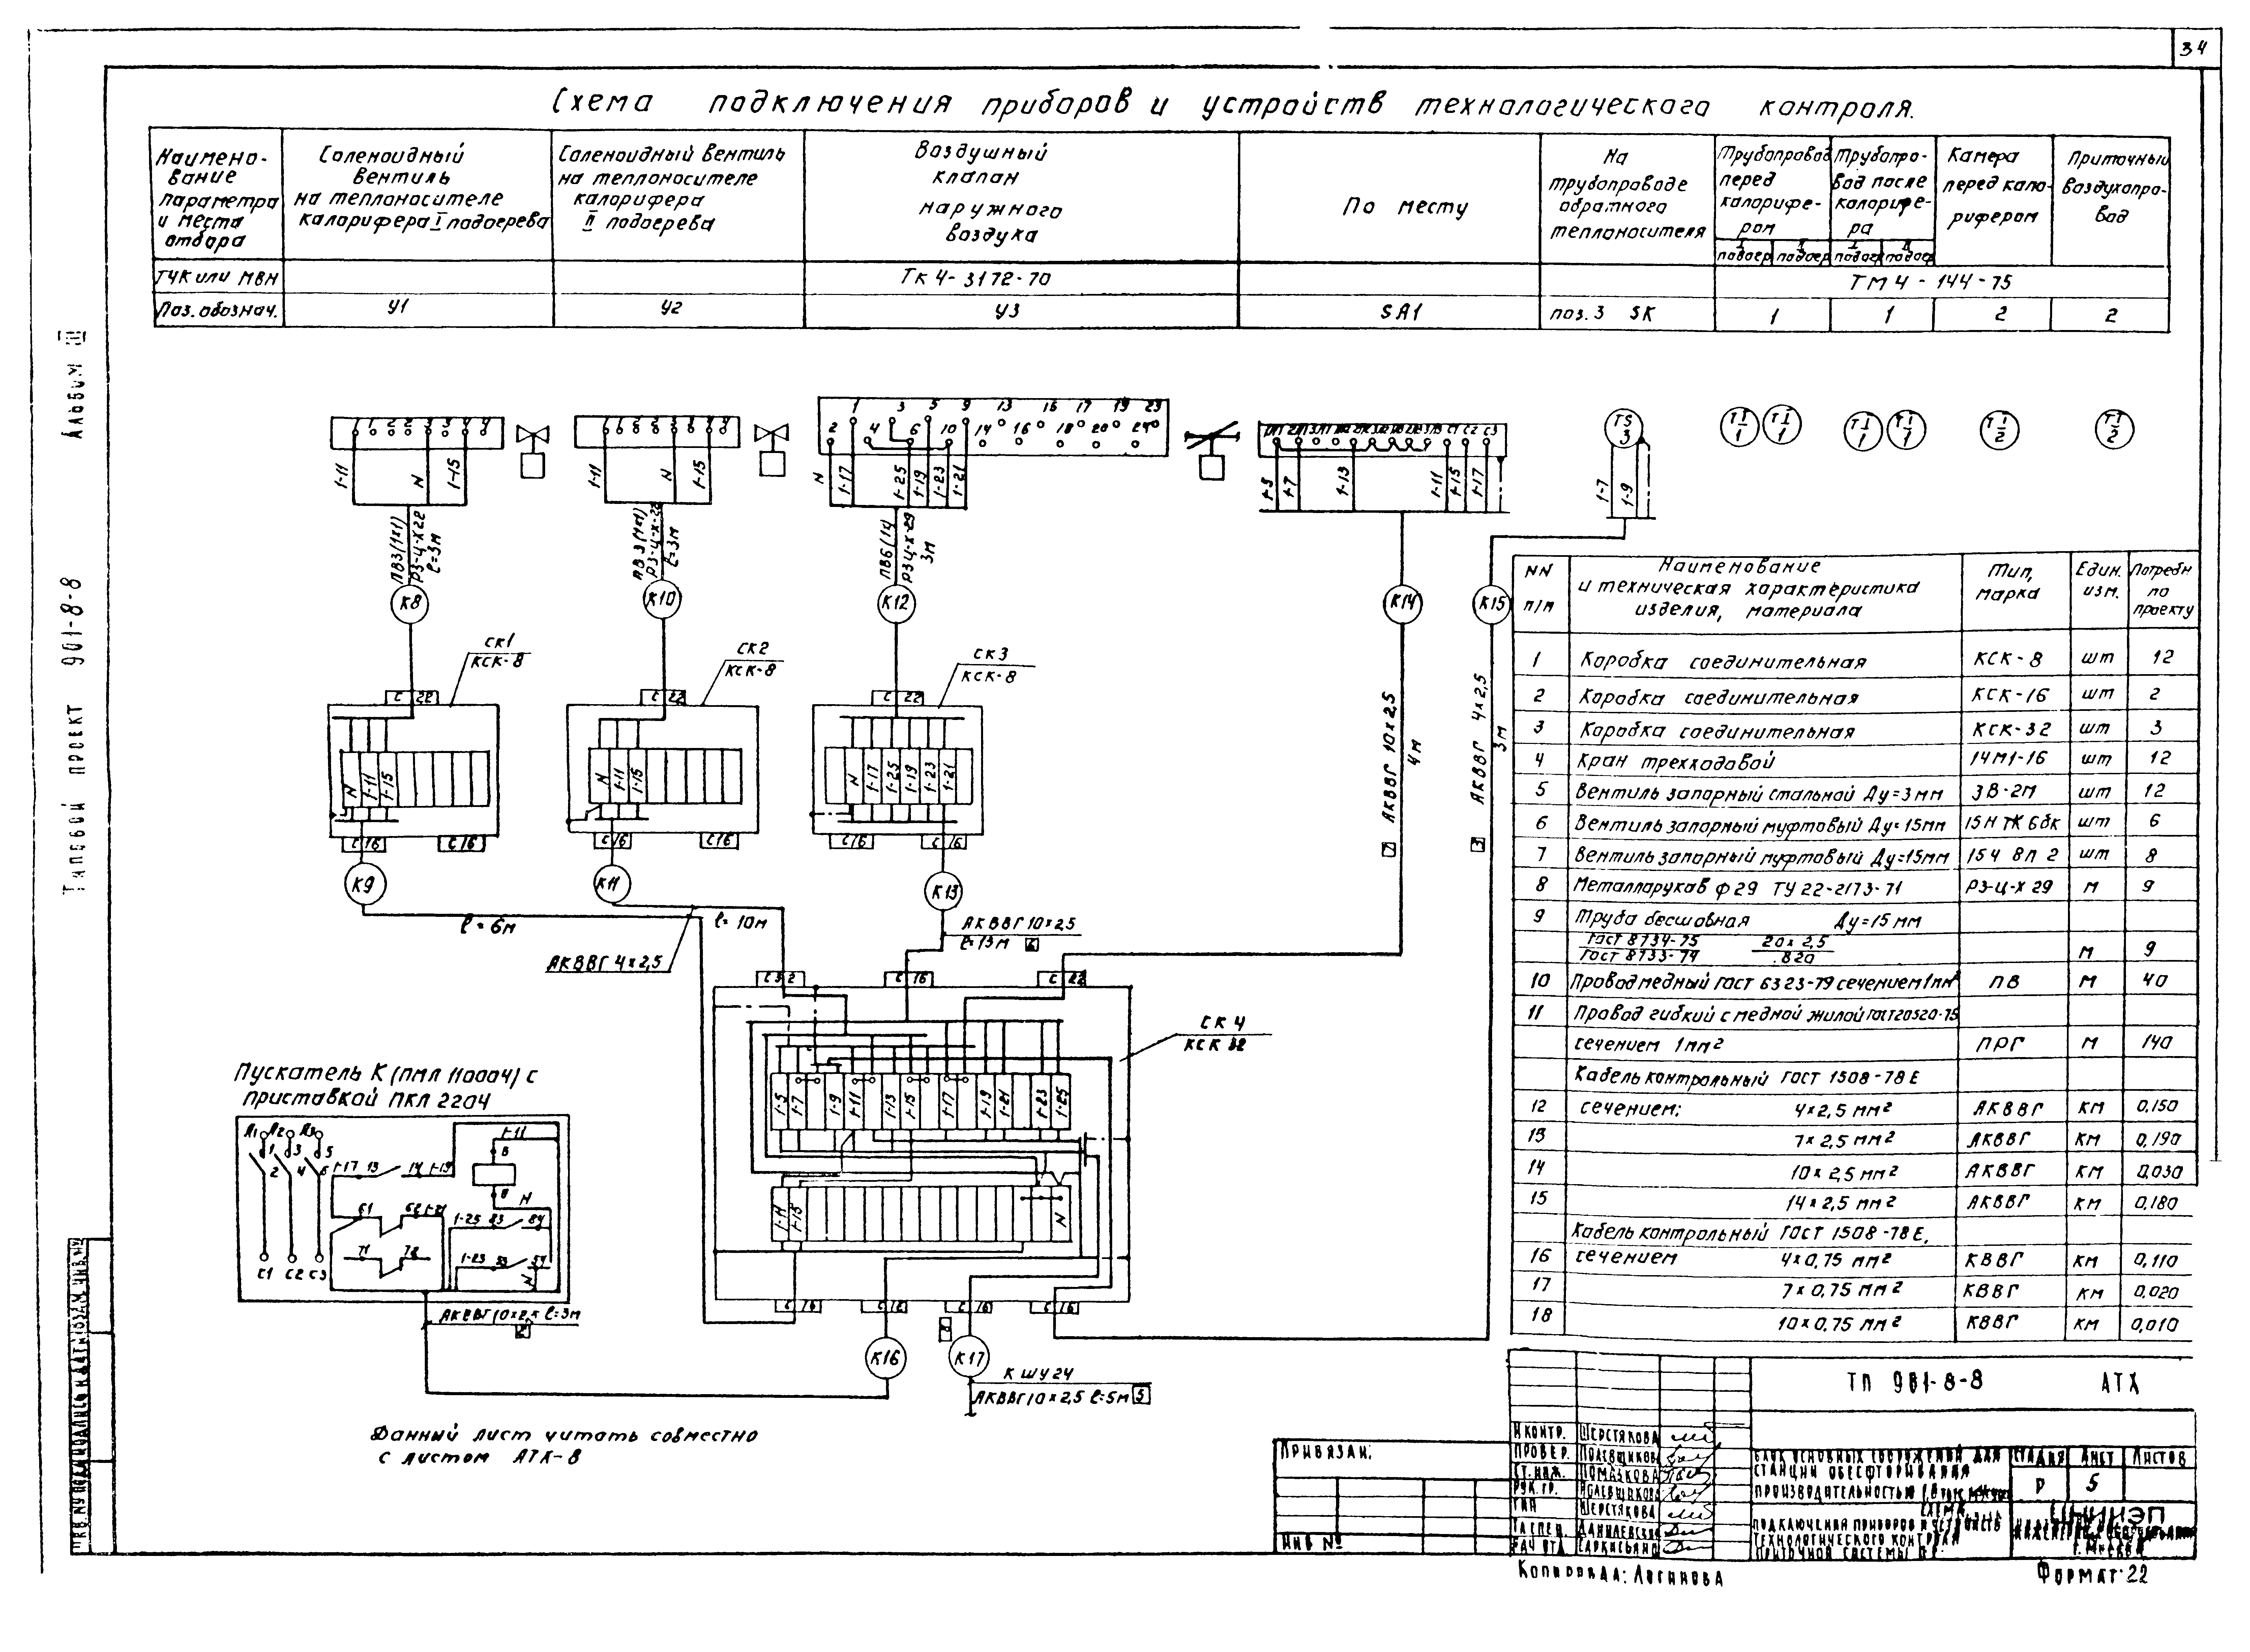 34
Схема подключения приборов и устройств технологического контроля.
Наимено-
вание
параметра
и места
отбора
Соленоидный
вентиль
на теплоносителе
калорифера I подогрева
Соленоидный вентиль
на теплоносителе
калорифера
II подогрева
Воздушный
клапан
наружного
воздуха
По месту
На
трубопроводе
обратного
теплоносителя
Трубопровод
перед
калорифе-
ром
Трубопро-
вод после
калорифе-
ра
Камера
перед кало-
рифером
Приточный
воздухопро-
вод
I подогр
II подогр
I подогр
II подогр
ТЧК или МВН
ТК 4-3172-70
ТМ4-144-75
Поз. обознач.
У1
У2
У3
SA1
поз. 3 SK
1
1
2
2
Альбом III
Типовой проект 901-8-8
1-11
N
1-15
1-11
N
1-15
1 3 5 9 13 16 17 19 23
2 4 6 10 14 16 18 20 24
N
1-17
1-25
1-19
1-23
1-21
1-5
1-7
1-13
1-11
1-15
1-17
C1 C2 C3
TS
3
1-7
1-9
ПВ3(1х1)
РЗ-Ц-Х22
ℓ=3м
ПВ3(1х1)
РЗ-Ц-Х-22
ℓ=3м
РЗЦ-Х-29
3м
К8
К10
К12
К14
К15
СК1
КСК-8
СК2
КСК-8
СК3
КСК-8
С 22
С 22
С 22
N
1-11
1-15
N
1-11
1-15
N
1-17
1-25
1-19
1-23
1-21
С 16
С 16
С 16
С 16
С 16
С 16
К9
К11
К13
ℓ=6м
ℓ=10м
АКВВГ 4×2,5
АКВВГ 10×2,5
ℓ=13м
АКВВГ 10×2,5
4м
7
АКВВГ 4×2,5
3м
3
С 32
С 16
С 22
СК4
КСК 32
1-5
1-7
1-9
1-11
1-13
1-15
1-17
1-19
1-21
1-23
1-25
1-11
1-15
N
С 16
С 16
С 16
С 16
К16
К17
К ШУ24
АКВВГ10×2,5 ℓ=5м 5
Пускатель К (ПМЛ 110004) с
приставкой ПКЛ 2204
Л1 Л2 Л3
1 3 5
2 4 6
С1 С2 С3
1-17 13 14 1-19
1-11
В
N
61 62 1-21
71 72
1-25 83 84
1-23 53 54
N
АКВВГ10×2,5 ℓ=3м
Данный лист читать совместно
с листом АТХ-8
NN
п/п
Наименование
и техническая характеристика
изделия, материала
Тип,
марка
Един.
изм.
Потребн
по
проекту
1 Коробка соединительная КСК-8 шт 12
2 Коробка соединительная КСК-16 шт 2
3 Коробка соединительная КСК-32 шт 3
4 Кран трехходовой 14М1-16 шт 12
5 Вентиль запорный стальной Ду=3мм ЗВ-2М шт 12
6 Вентиль запорный муфтовый Ду=15мм 15НТК6бк шт 6
7 Вентиль запорный муфтовый Ду=15мм 15Ч 8П 2 шт 8
8 Металлорукав ф29 ТУ 22-2173-71 РЗ-Ц-Х 29 м 9
9 Труба бесшовная Ду=15мм
ГОСТ 8734-75 20×2,5
ГОСТ 8733-74 В20 м 9
10 Провод медный ГОСТ 6323-79 сечением 1мм² ПВ м 40
11 Провод гибкий с медной жилой ГОСТ20520-75
сечением 1мм² ПРГ м 140
Кабель контрольный ГОСТ 1508-78Е
12 сечением: 4×2,5 мм² АКВВГ км 0,150
13 7×2,5 мм² АКВВГ км 0,190
14 10×2,5 мм² АКВВГ км 0,030
15 14×2,5 мм² АКВВГ км 0,180
Кабель контрольный ГОСТ 1508-78Е,
16 сечением 4×0,75 мм² КВВГ км 0,110
17 7×0,75 мм² КВВГ км 0,020
18 10×0,75 мм² КВВГ км 0,010
ТП 901-8-8 АТХ
Привязан:
Инв №
Н.контр. Шерстякова
Провер. Полевщикова
Ст.инж. Помазкова
Рук.гр. Полевщикова
ГИП Шерстякова
Гл.спец. Данилевский
Нач.отд. Саркисьянц
Блок основных сооружений для
станции обесфторивания
производительностью
Схема
подключения приборов и устройств
технологического контроля
приточной системы
Стадия Лист Листов
Р 5
ЦНИИЭП
инженерного оборудования
г. Москва
Копировала: Логинова
Формат: 22